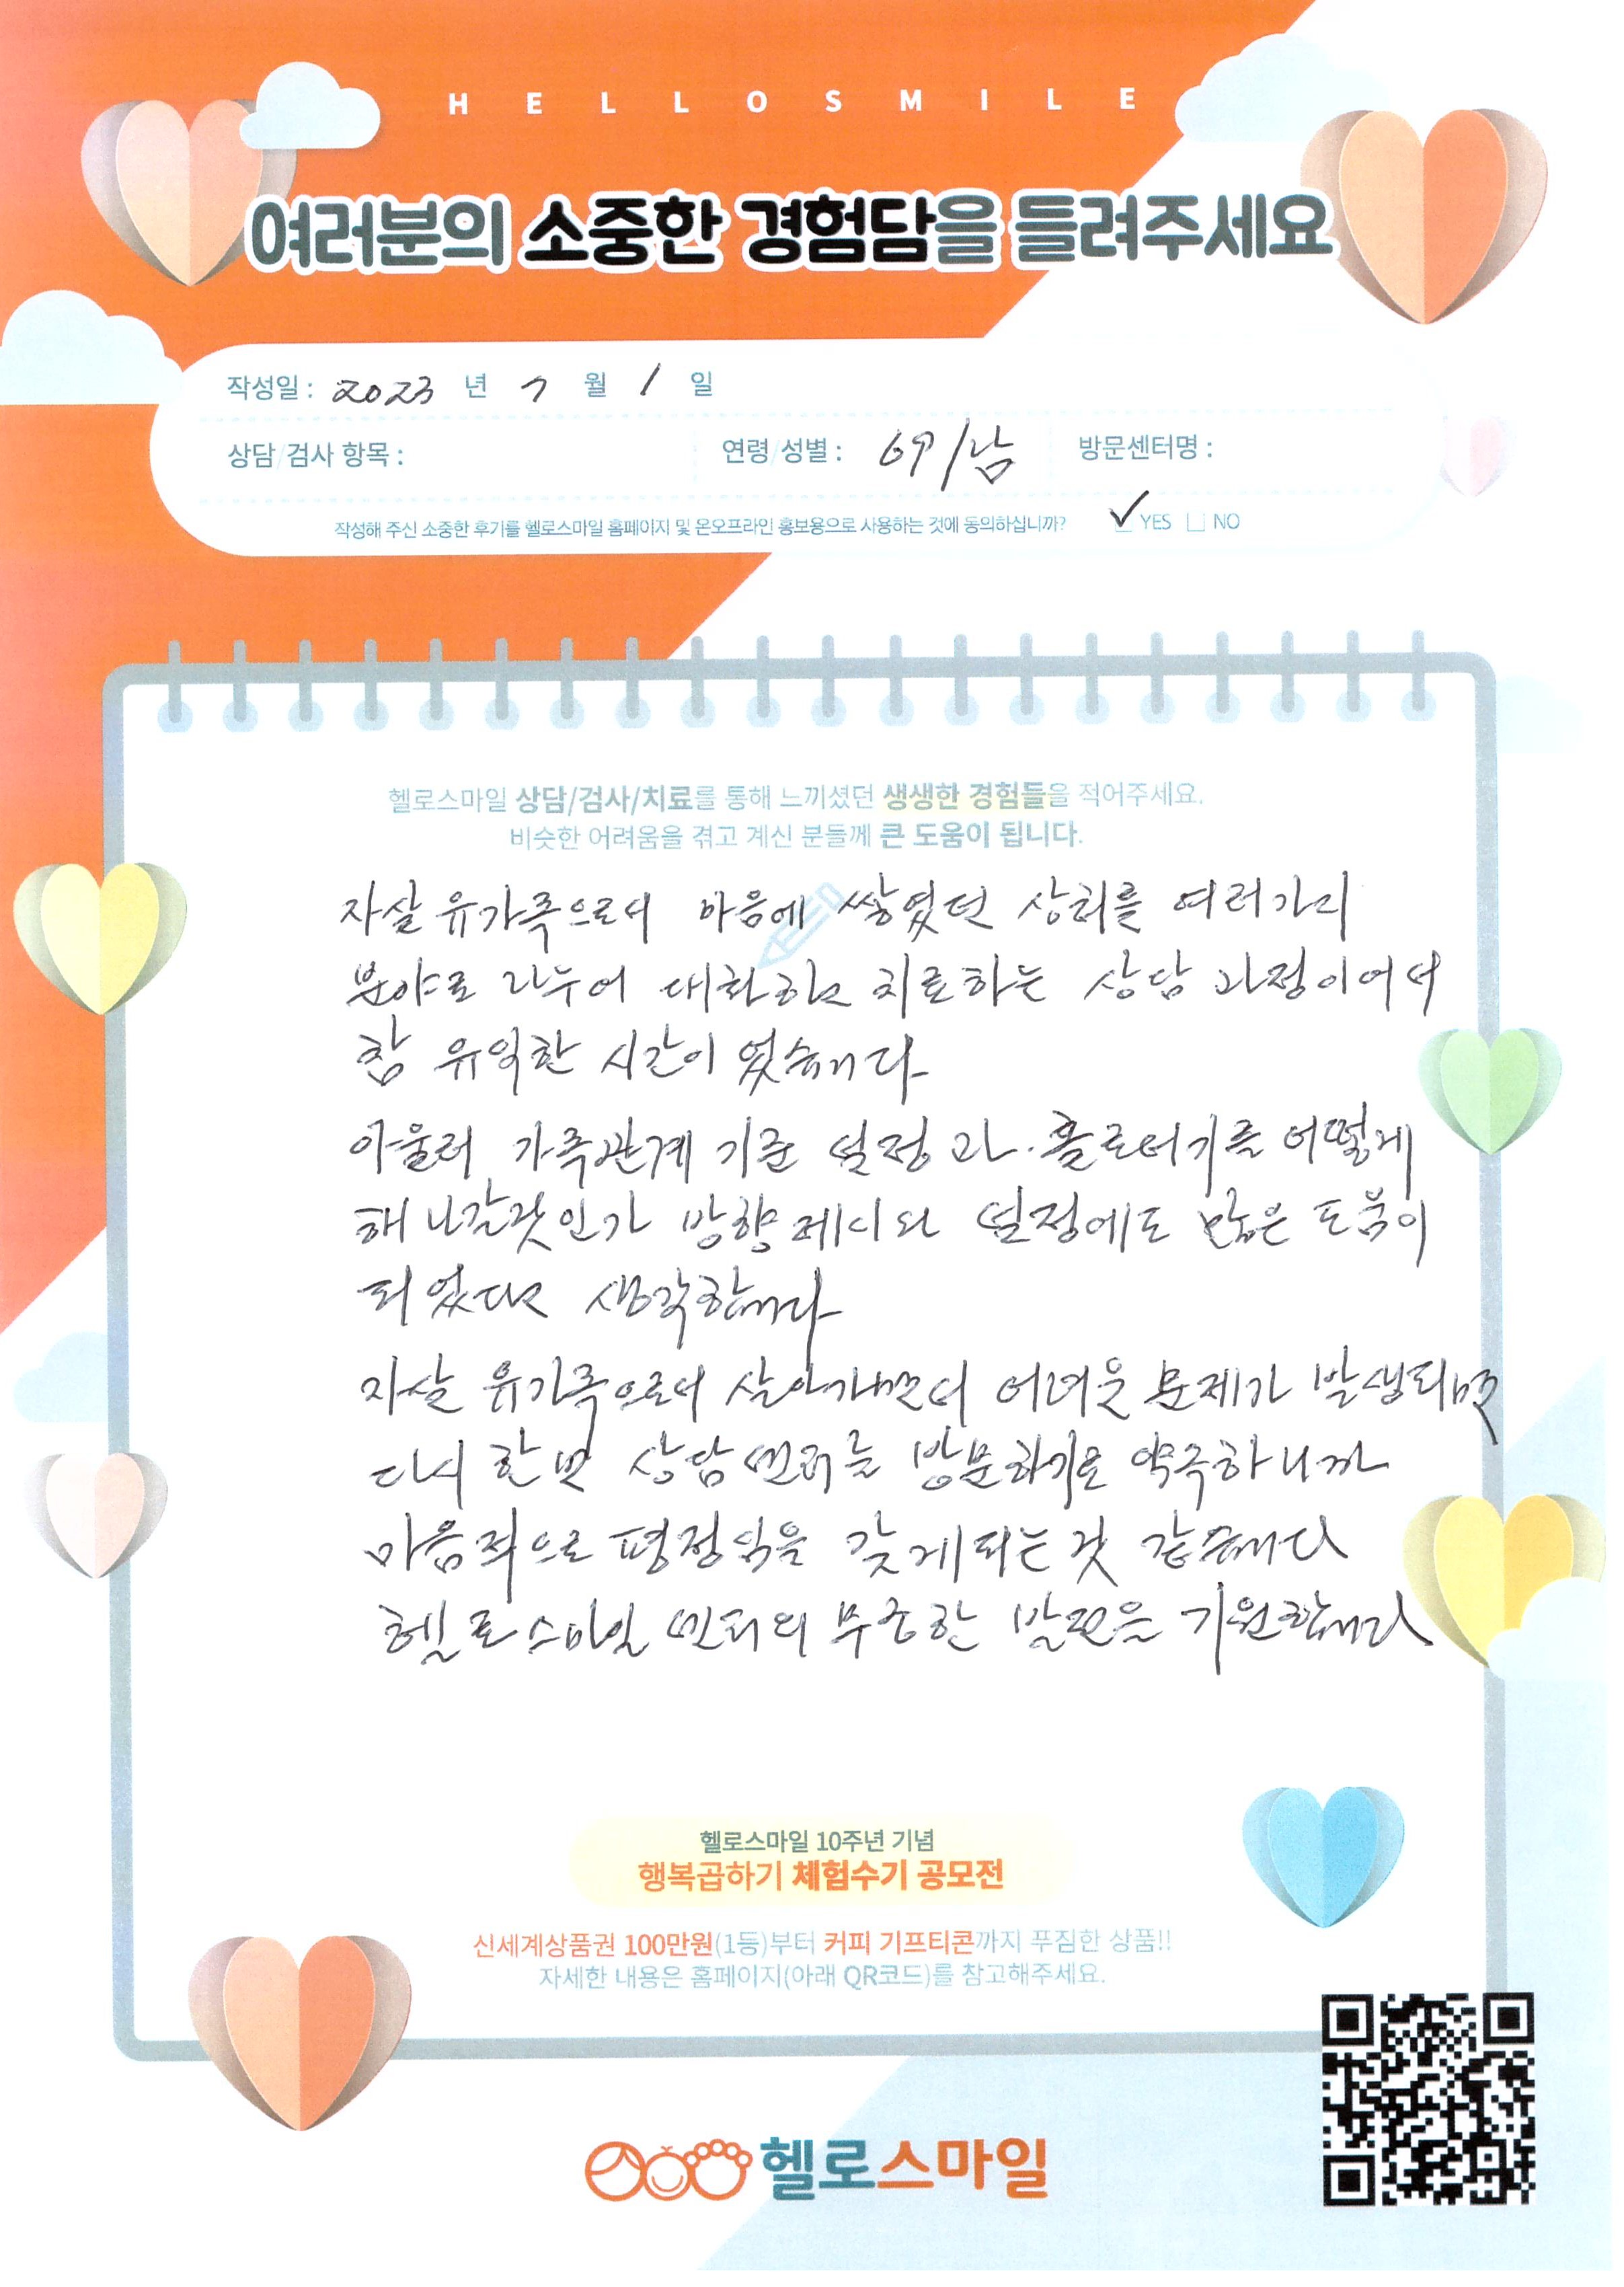 HELLOSMILE
여러분의 소중한 경험담을 들려주세요
작성일 : 2023 년 7 월 1 일
상담/검사 항목 : 연령/성별 : 69/남 방문센터명 :
작성해 주신 소중한 후기를 헬로스마일 홈페이지 및 온오프라인 홍보용으로 사용하는 것에 동의하십니까? ✓ YES □ NO
헬로스마일 상담/검사/치료를 통해 느끼셨던 생생한 경험들을 적어주세요.
비슷한 어려움을 겪고 계신 분들께 큰 도움이 됩니다.
자살 유가족으로서 마음에 쌓였던 상처를 여러가지
분야로 나누어 대화하고 치료하는 상담 과정이어서
참 유익한 시간이 었습니다
아울러 가족관계 기준 설정과 홀로서기를 어떻게
해 나갈것인가 방향 제시와 설정에도 많은 도움이
되었다고 생각합니다
자살 유가족으로서 살아가면서 어려운 문제가 발생되면
다시 한번 상담센터를 방문하기로 약속하니까
마음적으로 평정심을 갖게되는 것 같습니다
헬로스마일 센터의 무궁한 발전을 기원합니다
헬로스마일 10주년 기념
행복곱하기 체험수기 공모전
신세계상품권 100만원(1등)부터 커피 기프티콘까지 푸짐한 상품!!
자세한 내용은 홈페이지(아래 QR코드)를 참고해주세요.
헬로스마일